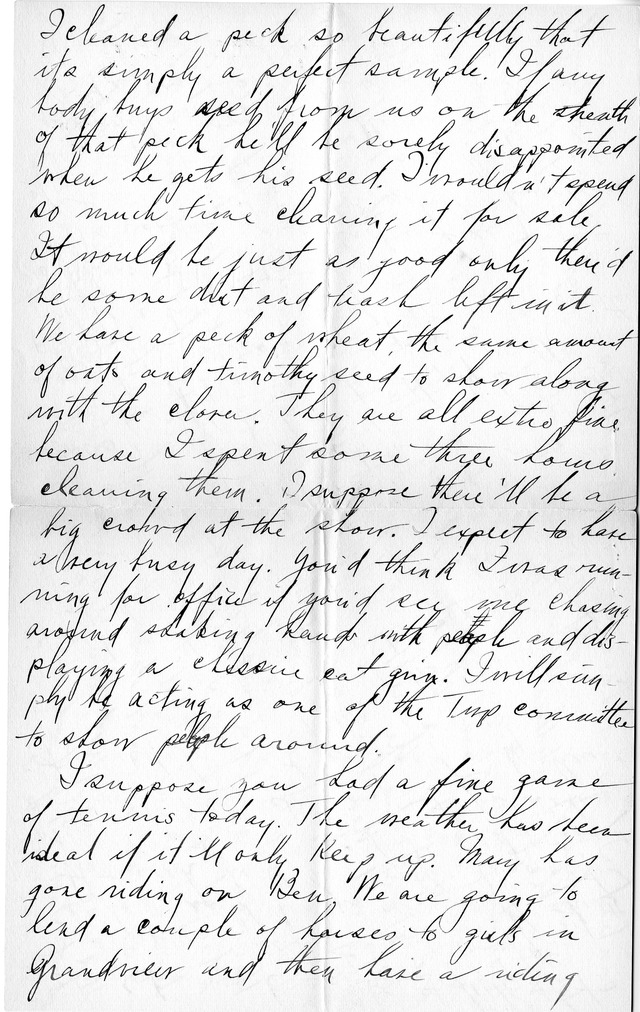 I cleaned a peck so beautifully that
its simply a perfect sample. If any
body buys seed from us on the strenth
of that peck he'll be sorely disappointed
when he gets his seed. I wouldn't spend
so much time cleaning it for sale
It would be just as good only there'd
be some dirt and trash left in it.
We have a peck of wheat, the same amount
of oats and timothy seed to show along
with the clover. They are all extra fine
because I spent some three hours
cleaning them. I suppose there'll be a
big crowd at the show. I expect to have
a very busy day. You'd think I was run-
ning for office if you'd see me chasing
around shaking hands with people and dis-
playing a chessie cat grin. I will sim-
ply be acting as one of the Twp committee
to show people around.
I suppose you had a fine game
of tennis today. The weather has been
ideal if it'll only keep up. Mary has
gone riding on Ben. We are going to
lend a couple of horses to girls in
Grandview and then have a riding